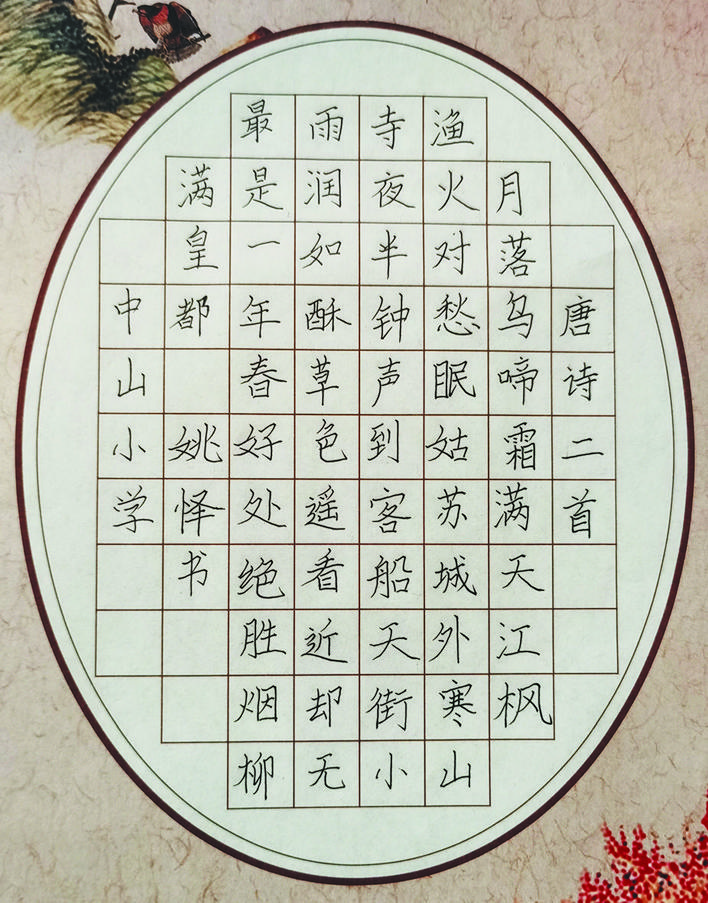 唐诗二首
月落乌啼霜满天江枫
渔火对愁眠姑苏城外寒山
寺夜半钟声到客船天街小
雨润如酥草色遥看近却无
最是一年春好处绝胜烟柳
满皇都 姚怿书
中山小学